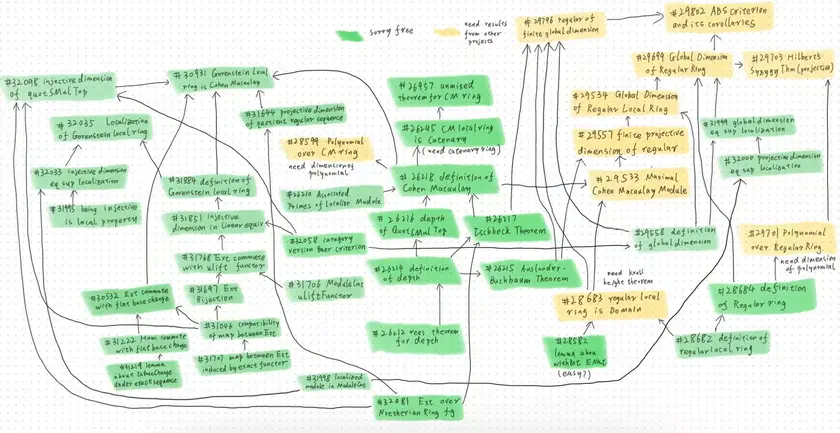 sorry free
need results
from other
projects
#29796 regular of
finite global dimension
#29802 ABS criterion
and its corollaries
#32098 injective dimension
of quotSMulTop
#30931 Gorenstein local
ring is Cohen Macaulay
#26957 unmixed
theorem for CM ring
#29699 Global Dimension
of Regular Ring
#29703 Hilbert's
Syzygy Thm (projective)
#31644 projective dimension
of quotient regular sequence
#29534 Global Dimension
of Regular Local Ring
#32035 Localization
of Gorenstein local ring
#26245 CM local ring
is Catenary
(need catenary ring)
#31999 global dimension
eq sup localization
#28599 Polynomial
over CM ring
need dimension of
polynomial
#29557 finite projective
dimension of regular
#32033 injective dimension
eq sup localization
#32000 projective dimension
eq sup localization
#31884 definition of
Gorenstein local ring
#26218 definition of
Cohen Macaulay
#29533 Maximal
Cohen Macaulay Module
#26210 Associated
Primes of Localize Module
#31995 being injective
is local property
#31851 injective
dimension in linear equiv
#26216 depth
of QuotSMulTop
#26217
Ischbeck Theorem
#29558 definition
of global dimension
#29701 Polynomial
over Regular Ring
need dimension
of polynomial
#32058 category
version Baer criterion
#31768 Ext commute
with ulift functor
#26214 definition
of depth
#26215 Auslander-
Buchbaum Theorem
#31706 ModuleCat
ulift functor
need krull
height theorem
#30532 Ext commute
with flat base change
#31697 Ext
Bijection
#28683 regular local
ring is Domain
#28684 definition
of Regular ring
#31046 compatibility
of map between Ext
#26212 rees theorem
for depth
#31222 Hom commute
with flat base change
#28582
lemma about
withBot ENat
(easy?)
#28682 definition of
regular local ring
#31219 lemma
about IsBaseChange
under exact sequence
#31707 map between Ext
induced by exact functor
#31998 localized
module in ModuleCat
#32081 Ext over
Noetherian Ring fg